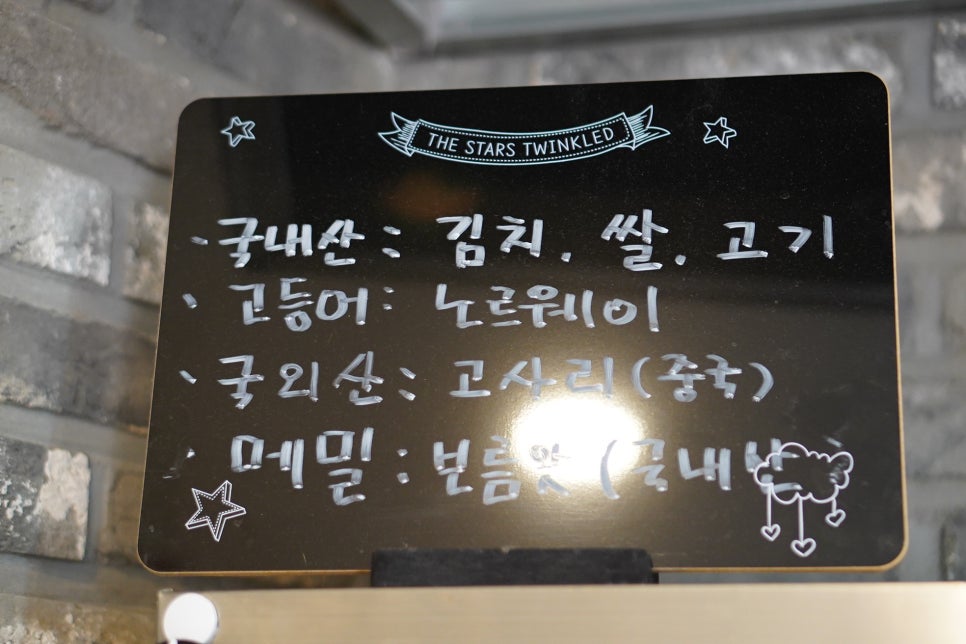 THE STARS TWINKLED
· 국내산 : 김치, 쌀, 고기
· 고등어 : 노르웨이
· 국외산 : 고사리(중국)
· 메밀 : 보름왓 (국내산)